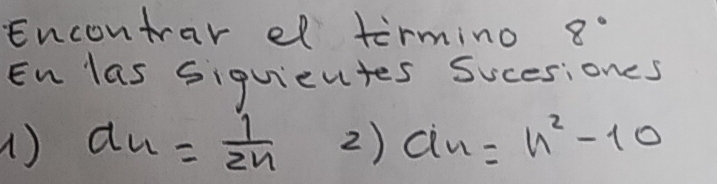 Encontrar el término 8°
En las siguientes Sucesiones
1) an = 1/2n 2) an = n² - 10